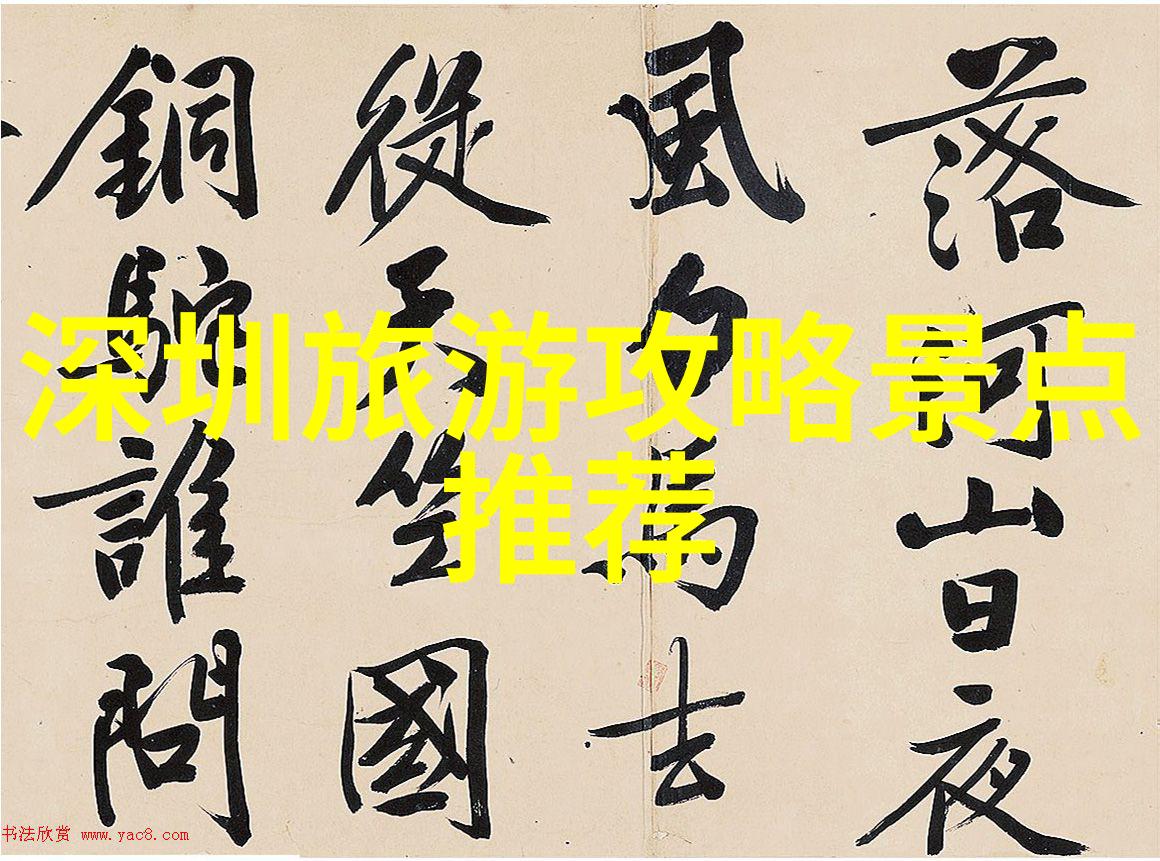 深圳旅游攻略景点
推荐
落河山日夜
風白馬去
從天竺國
銅駝誰問
书法欣赏 www.yac8.com